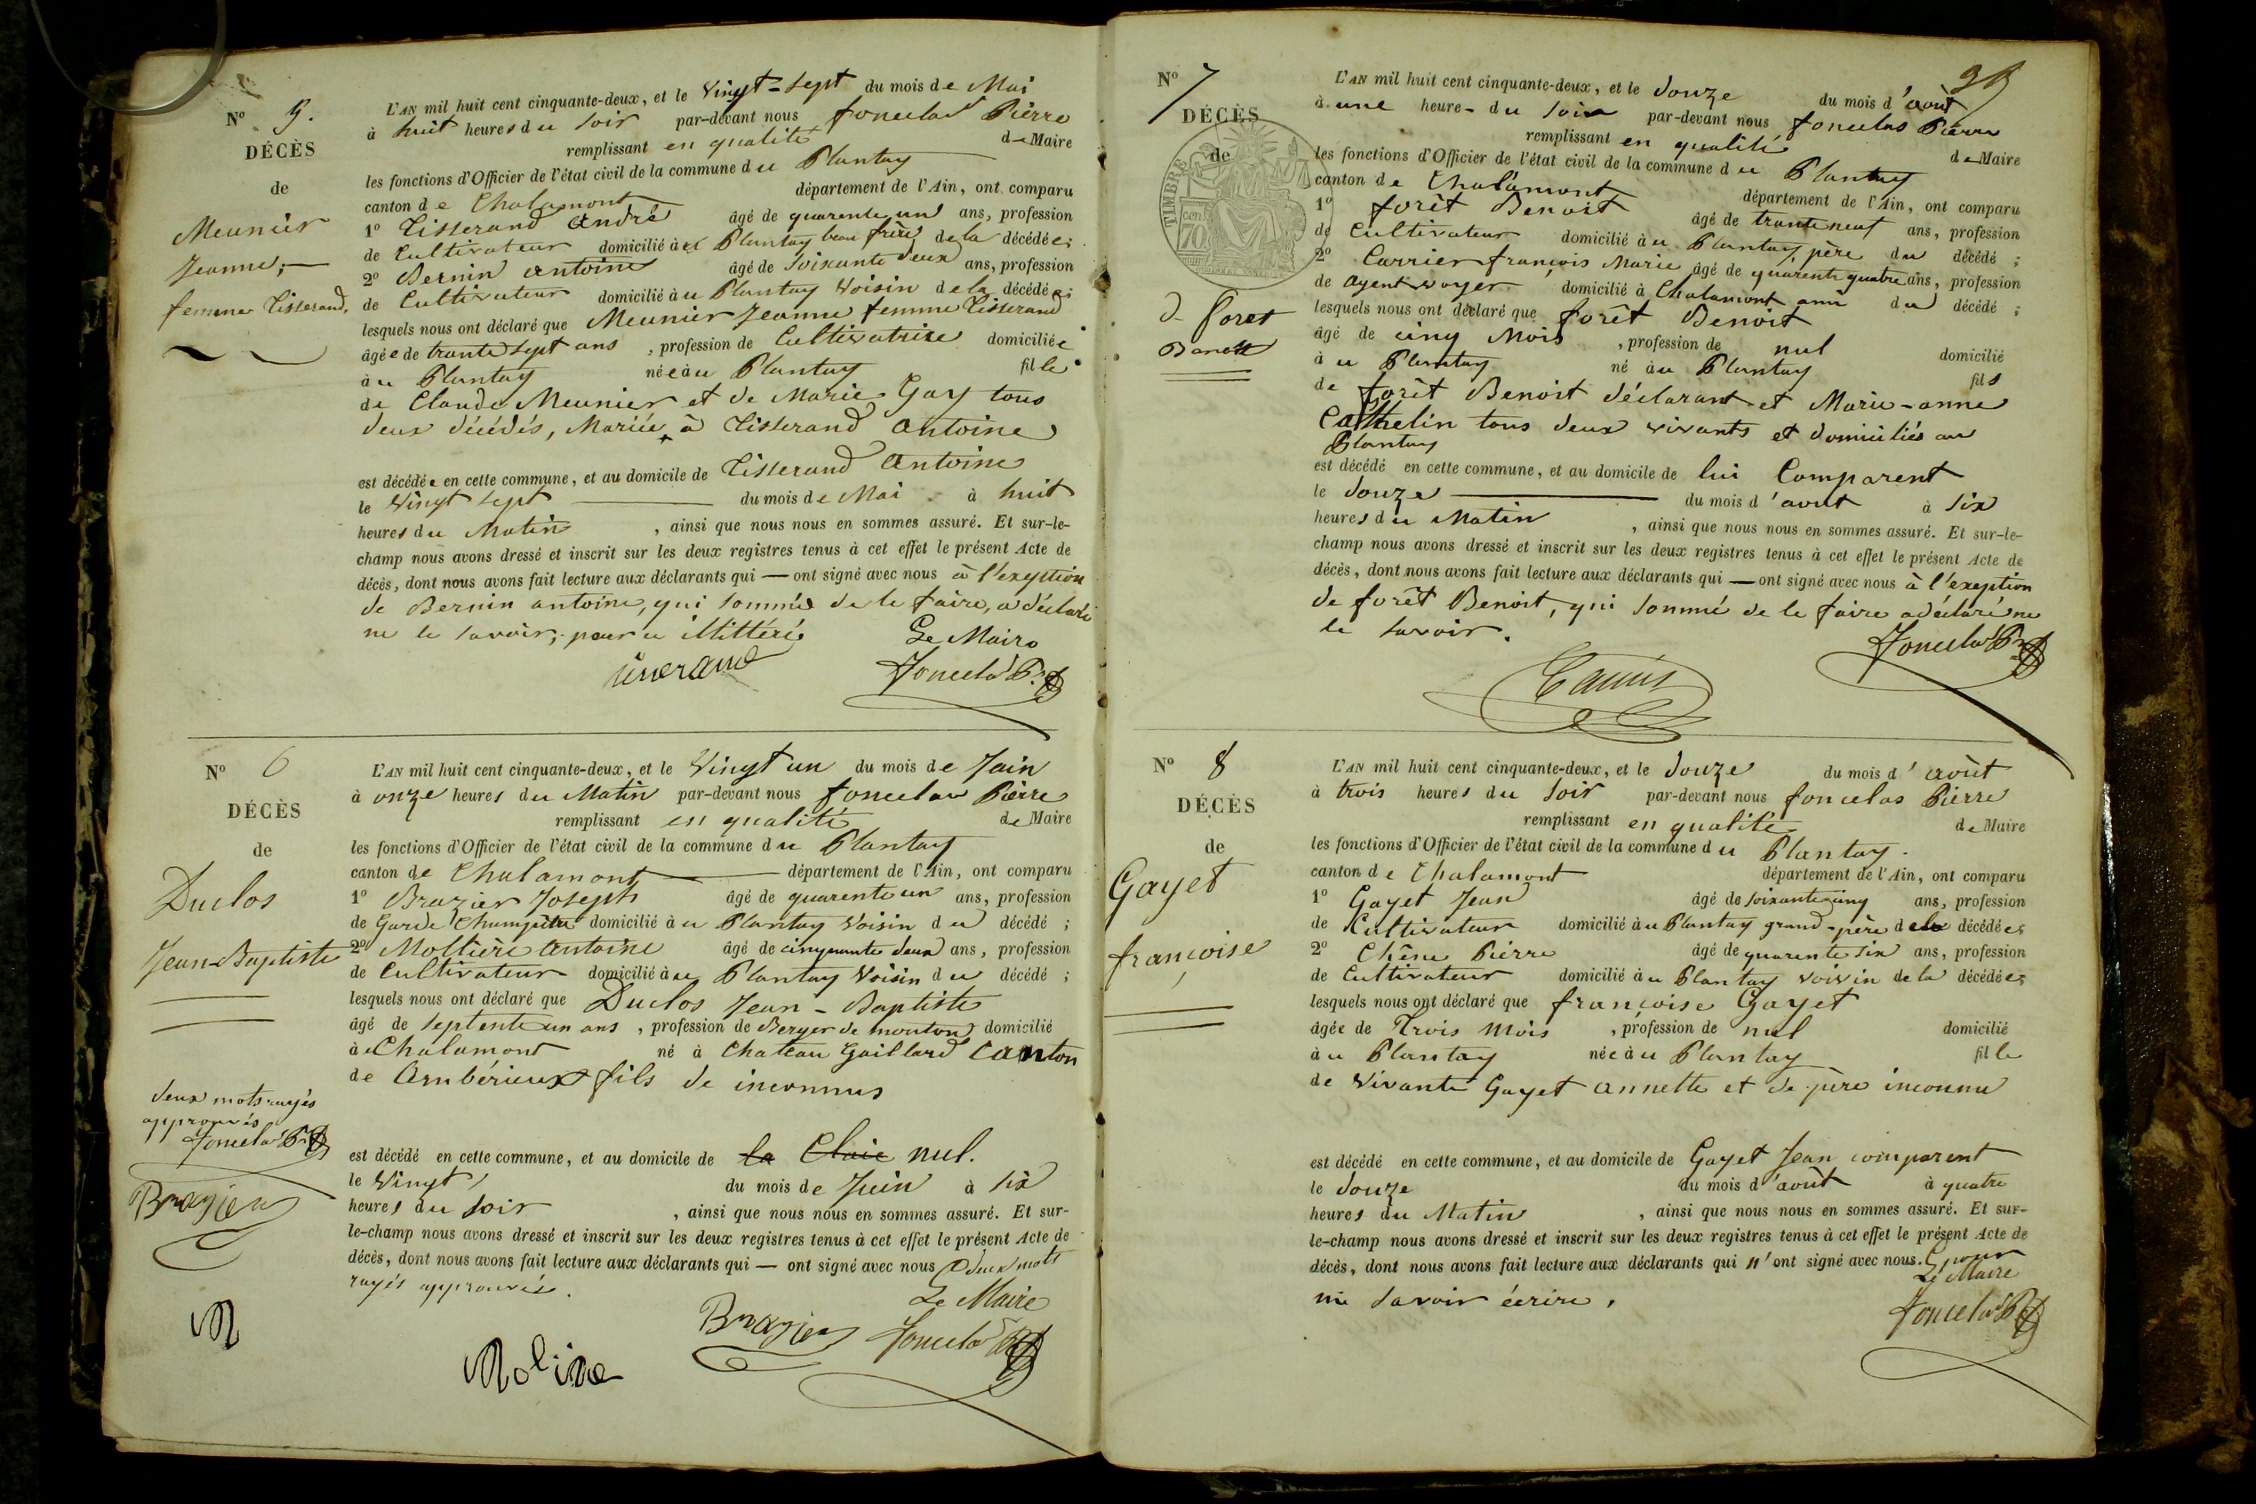 N° 5.
DÉCÈS
de
Meunier
Jeanne, —
femme Tisserand.
L'AN mil huit cent cinquante-deux, et le vingt-sept du mois de Mai
à huit heures du soir par-devant nous foncelas Pierre
remplissant en qualité de Maire
les fonctions d'Officier de l'état civil de la commune du Plantay
canton de Chalamont département de l'Ain, ont comparu
1° Tisserand André âgé de quarente un ans, profession
de Cultivateur domicilié à u Plantay beau frère de la décédée;
2° Bernin antoine âgé de soixante deux ans, profession
de Cultivateur domicilié à u Plantay voisin de la décédée;
lesquels nous ont déclaré que Meunier Jeanne femme Tisserand
âgée de trante sept ans, profession de Cultivatrice domiciliée
à u Plantay née à u Plantay fille
de Claude Meunier et de Marie Gay tous
deux décédés, Mariée à Tisserand Antoine
est décédée en cette commune, et au domicile de Tisserand Antoine
le vingt sept du mois de Mai à huit
heures du Matin, ainsi que nous nous en sommes assuré. Et sur-le-
champ nous avons dressé et inscrit sur les deux registres tenus à cet effet le présent Acte de
décès, dont nous avons fait lecture aux déclarants qui — ont signé avec nous à l'exeption
de Bernin antoine, qui sommé de le faire, a déclaré
ne le savoir, pour illittéré
Le Maire
tisserand foncelas Pre
N° 6
DÉCÈS
de
Duclos
Jean-Baptiste
L'AN mil huit cent cinquante-deux, et le vingt un du mois de Juin
à onze heures du Matin par-devant nous foncelas Pierre
remplissant en qualité de Maire
les fonctions d'Officier de l'état civil de la commune du Plantay
canton de Chalamont département de l'Ain, ont comparu
1° Brazier Joseph âgé de quarente un ans, profession
de Garde Champêtre domicilié à u Plantay voisin du décédé;
2° Moltière antoine âgé de cinquante deux ans, profession
de Cultivateur domicilié à u Plantay voisin du décédé;
lesquels nous ont déclaré que Duclos Jean-Baptiste
âgé de septente un ans, profession de Berger de mouton domicilié
à Chalamont né à Chateau Gaillard canton
de Ambérieux fils de inconnus
deux mots rayés
approuvés
foncelas Pre
Brazier
M
est décédé en cette commune, et au domicile de la Claie nul.
le vingt du mois de Juin à six
heures du soir, ainsi que nous nous en sommes assuré. Et sur-
le-champ nous avons dressé et inscrit sur les deux registres tenus à cet effet le présent Acte de
décès, dont nous avons fait lecture aux déclarants qui — ont signé avec nous deux mots
rayés approuvés.
Le Maire
Brazier foncelas Pre
Moline
N° 7
DÉCÈS
de
TIMBRE
70
d. foret
Benoit
L'AN mil huit cent cinquante-deux, et le douze du mois d'août
à une heure du soir par-devant nous foncelas Pierre
remplissant en qualité de Maire
les fonctions d'Officier de l'état civil de la commune du Plantay
canton de Chalamont département de l'Ain, ont comparu
1° forêt Benoit âgé de trante neuf ans, profession
de Cultivateur domicilié à u Plantay père du décédé;
2° Carrier françois Marie âgé de quarente quatre ans, profession
de agent voyer domicilié à Chalamont ami du décédé;
lesquels nous ont déclaré que forêt Benoit
âgé de cinq Mois, profession de nul domicilié
à u Plantay né à u Plantay fils
de forêt Benoit déclarant et Marie-anne
Cathelin tous deux vivants et domiciliés au
Plantay
est décédé en cette commune, et au domicile de lui Comparent
le douze du mois d'aout à six
heures du Matin, ainsi que nous nous en sommes assuré. Et sur-le-
champ nous avons dressé et inscrit sur les deux registres tenus à cet effet le présent Acte de
décès, dont nous avons fait lecture aux déclarants qui — ont signé avec nous à l'exeption
de forêt Benoit, qui sommé de le faire a déclaré ne
le savoir.
foncelas Pre
N° 8
DÉCÈS
de
Gayet
françoise
L'AN mil huit cent cinquante-deux, et le douze du mois d'août
à trois heures du soir par-devant nous foncelas Pierre
remplissant en qualité de Maire
les fonctions d'Officier de l'état civil de la commune du Plantay.
canton de Chalamont département de l'Ain, ont comparu
1° Gayet Jean âgé de soixante cinq ans, profession
de Cultivateur domicilié à u Plantay grand-père de la décédée;
2° Chêne Pierre âgé de quarente six ans, profession
de Cultivateur domicilié à u Plantay voisin de la décédée;
lesquels nous ont déclaré que françoise Gayet
âgée de Trois Mois, profession de nul domicilié
à u Plantay née à u Plantay fille
de vivante Gayet annette et de père inconnu
est décédé en cette commune, et au domicile de Gayet Jean comparent
le douze du mois d'août à quatre
heures du Matin, ainsi que nous nous en sommes assuré. Et sur-
le-champ nous avons dressé et inscrit sur les deux registres tenus à cet effet le présent Acte de
décès, dont nous avons fait lecture aux déclarants qui n'ont signé avec nous. pour
ne savoir écrire,
Le Maire
foncelas Pre